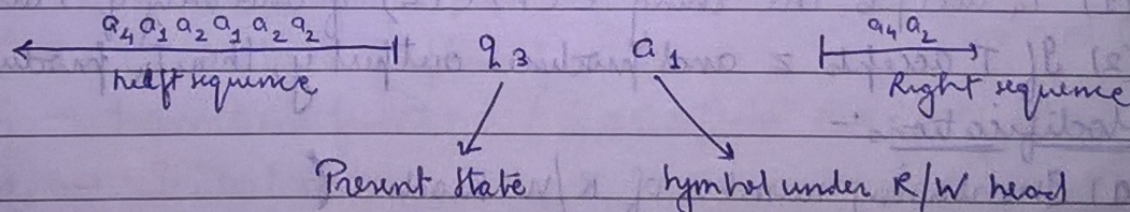 a₄ a₁ a₂ a₁ a₂ a₂ q₃ a₁ a₄ a₂
Left sequence Right sequence
Present State Symbol under R/W head